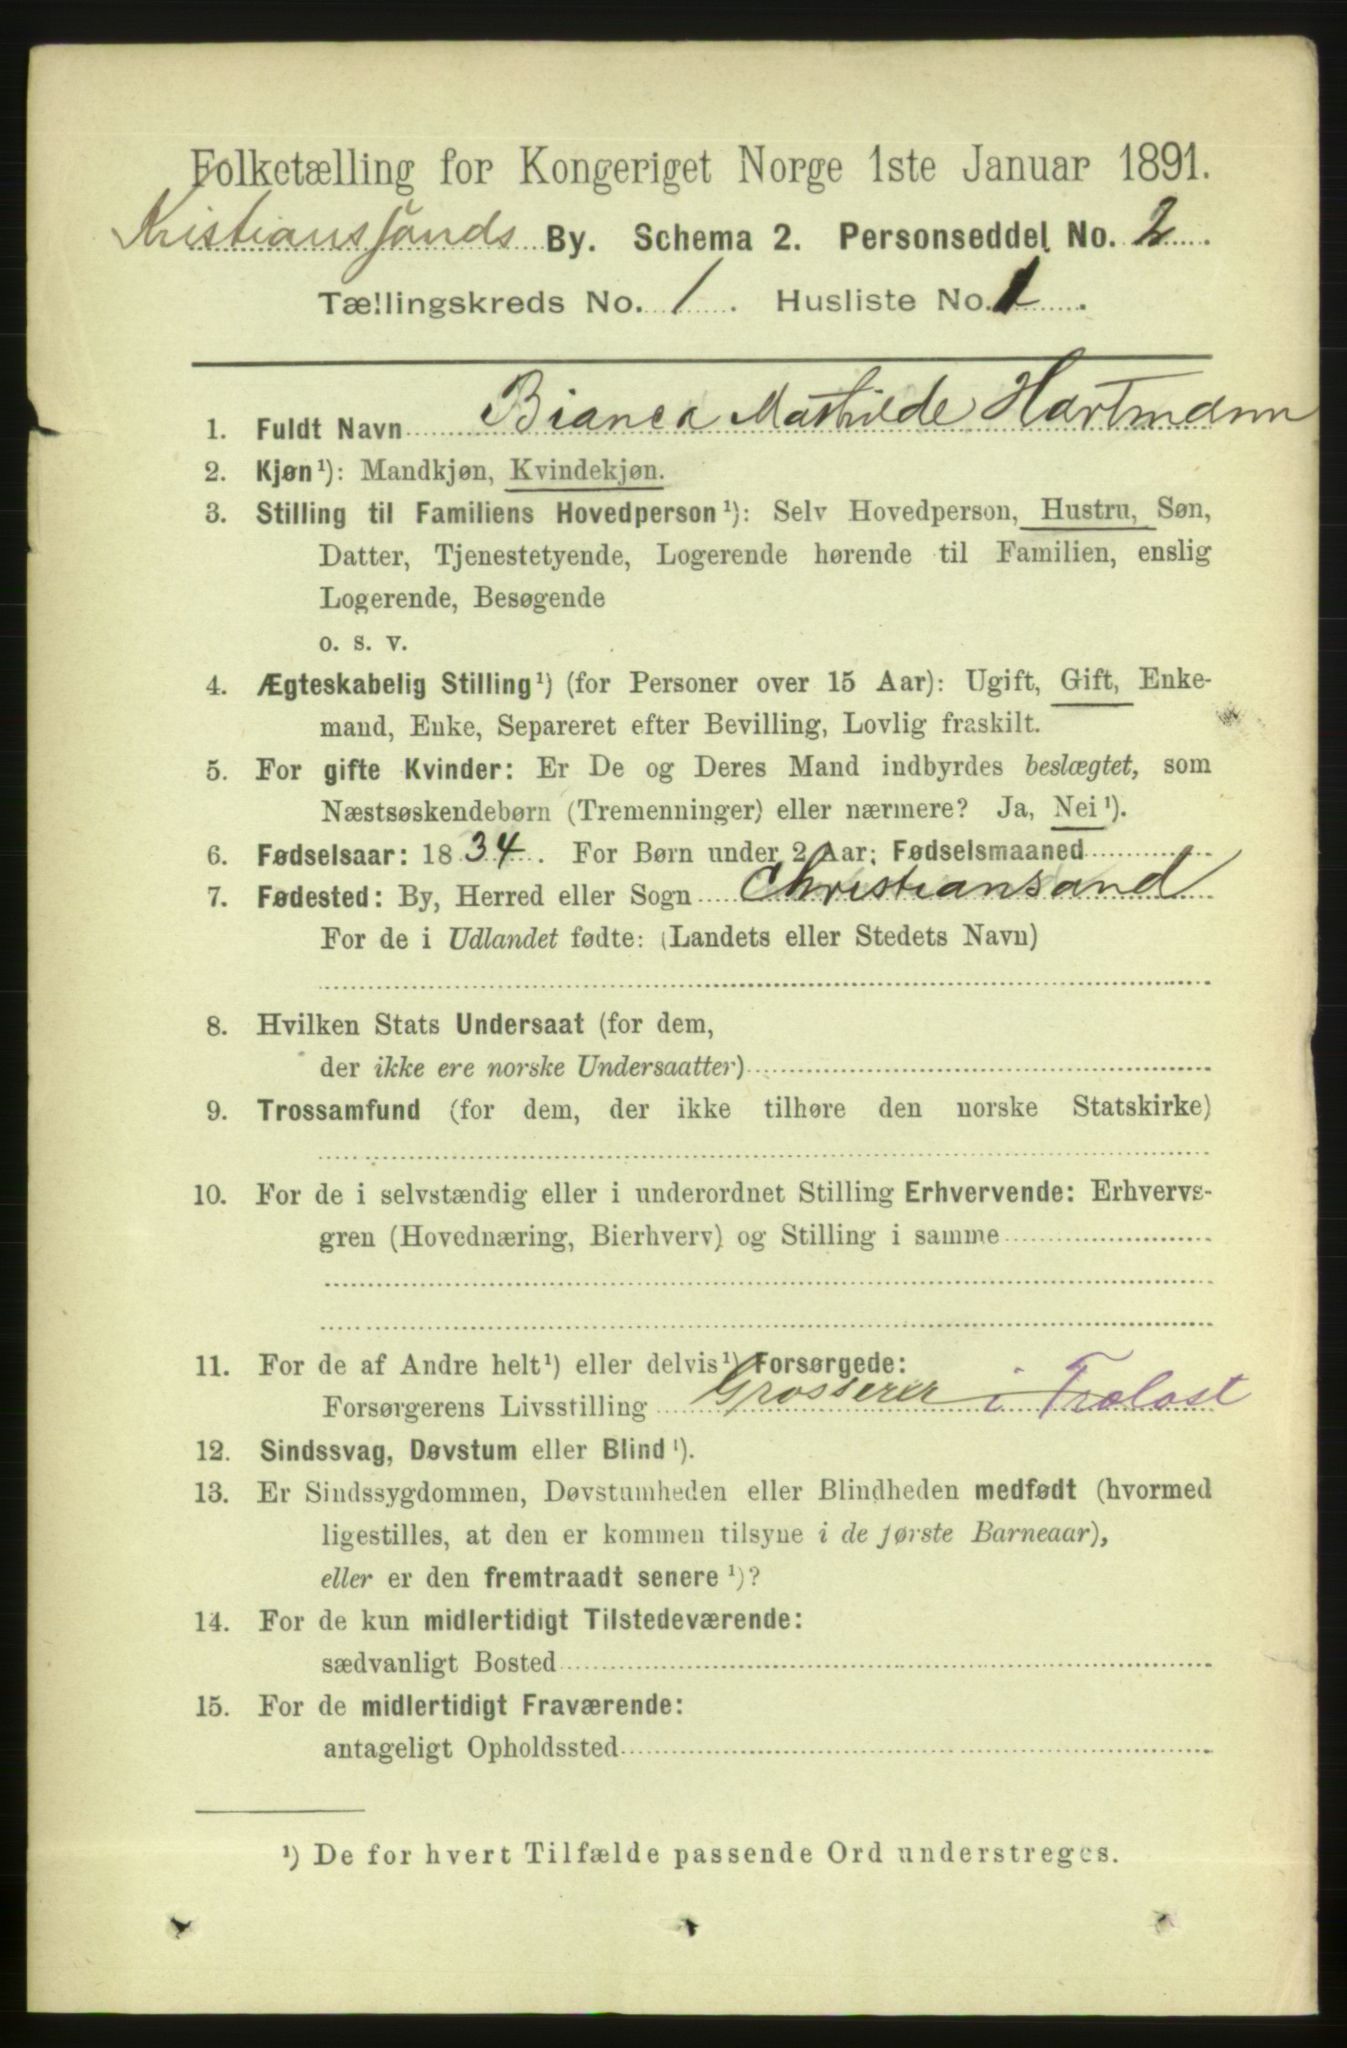 Folketælling for Kongeriget Norge 1ste Januar 1891.
Kristianssands By. Schema 2. Personseddel No. 2
Tællingskreds No. 1. Husliste No. 1.
1. Fuldt Navn Bianca Mathilde Hartmann
2. Kjøn¹): Mandkjøn, Kvindekjøn.
3. Stilling til Familiens Hovedperson¹): Selv Hovedperson, Hustru, Søn,
Datter, Tjenestetyende, Logerende hørende til Familien, enslig
Logerende, Besøgende
o. s. v.
4. Ægteskabelig Stilling¹) (for Personer over 15 Aar): Ugift, Gift, Enke-
mand, Enke, Separeret efter Bevilling, Lovlig fraskilt.
5. For gifte Kvinder: Er De og Deres Mand indbyrdes beslægtet, som
Næstsøskendebørn (Tremenninger) eller nærmere? Ja, Nei¹).
6. Fødselsaar: 1834. For Børn under 2 Aar: Fødselsmaaned
7. Fødested: By, Herred eller Sogn Christiansand
For de i Udlandet fødte: (Landets eller Stedets Navn)
8. Hvilken Stats Undersaat (for dem,
der ikke ere norske Undersaatter)
9. Trossamfund (for dem, der ikke tilhøre den norske Statskirke)
10. For de i selvstændig eller i underordnet Stilling Erhvervende: Erhvervs-
gren (Hovednæring, Bierhverv) og Stilling i samme
11. For de af Andre helt¹) eller delvis¹) Forsørgede:
Forsørgerens Livsstilling Grosserer i Trælast
12. Sindssvag, Døvstum eller Blind¹).
13. Er Sindssygdommen, Døvstumheden eller Blindheden medfødt (hvormed
ligestilles, at den er kommen tilsyne i de første Barneaar),
eller er den fremtraadt senere¹)?
14. For de kun midlertidigt Tilstedeværende:
sædvanligt Bosted
15. For de midlertidigt Fraværende:
antageligt Opholdssted
¹) De for hvert Tilfælde passende Ord understreges.